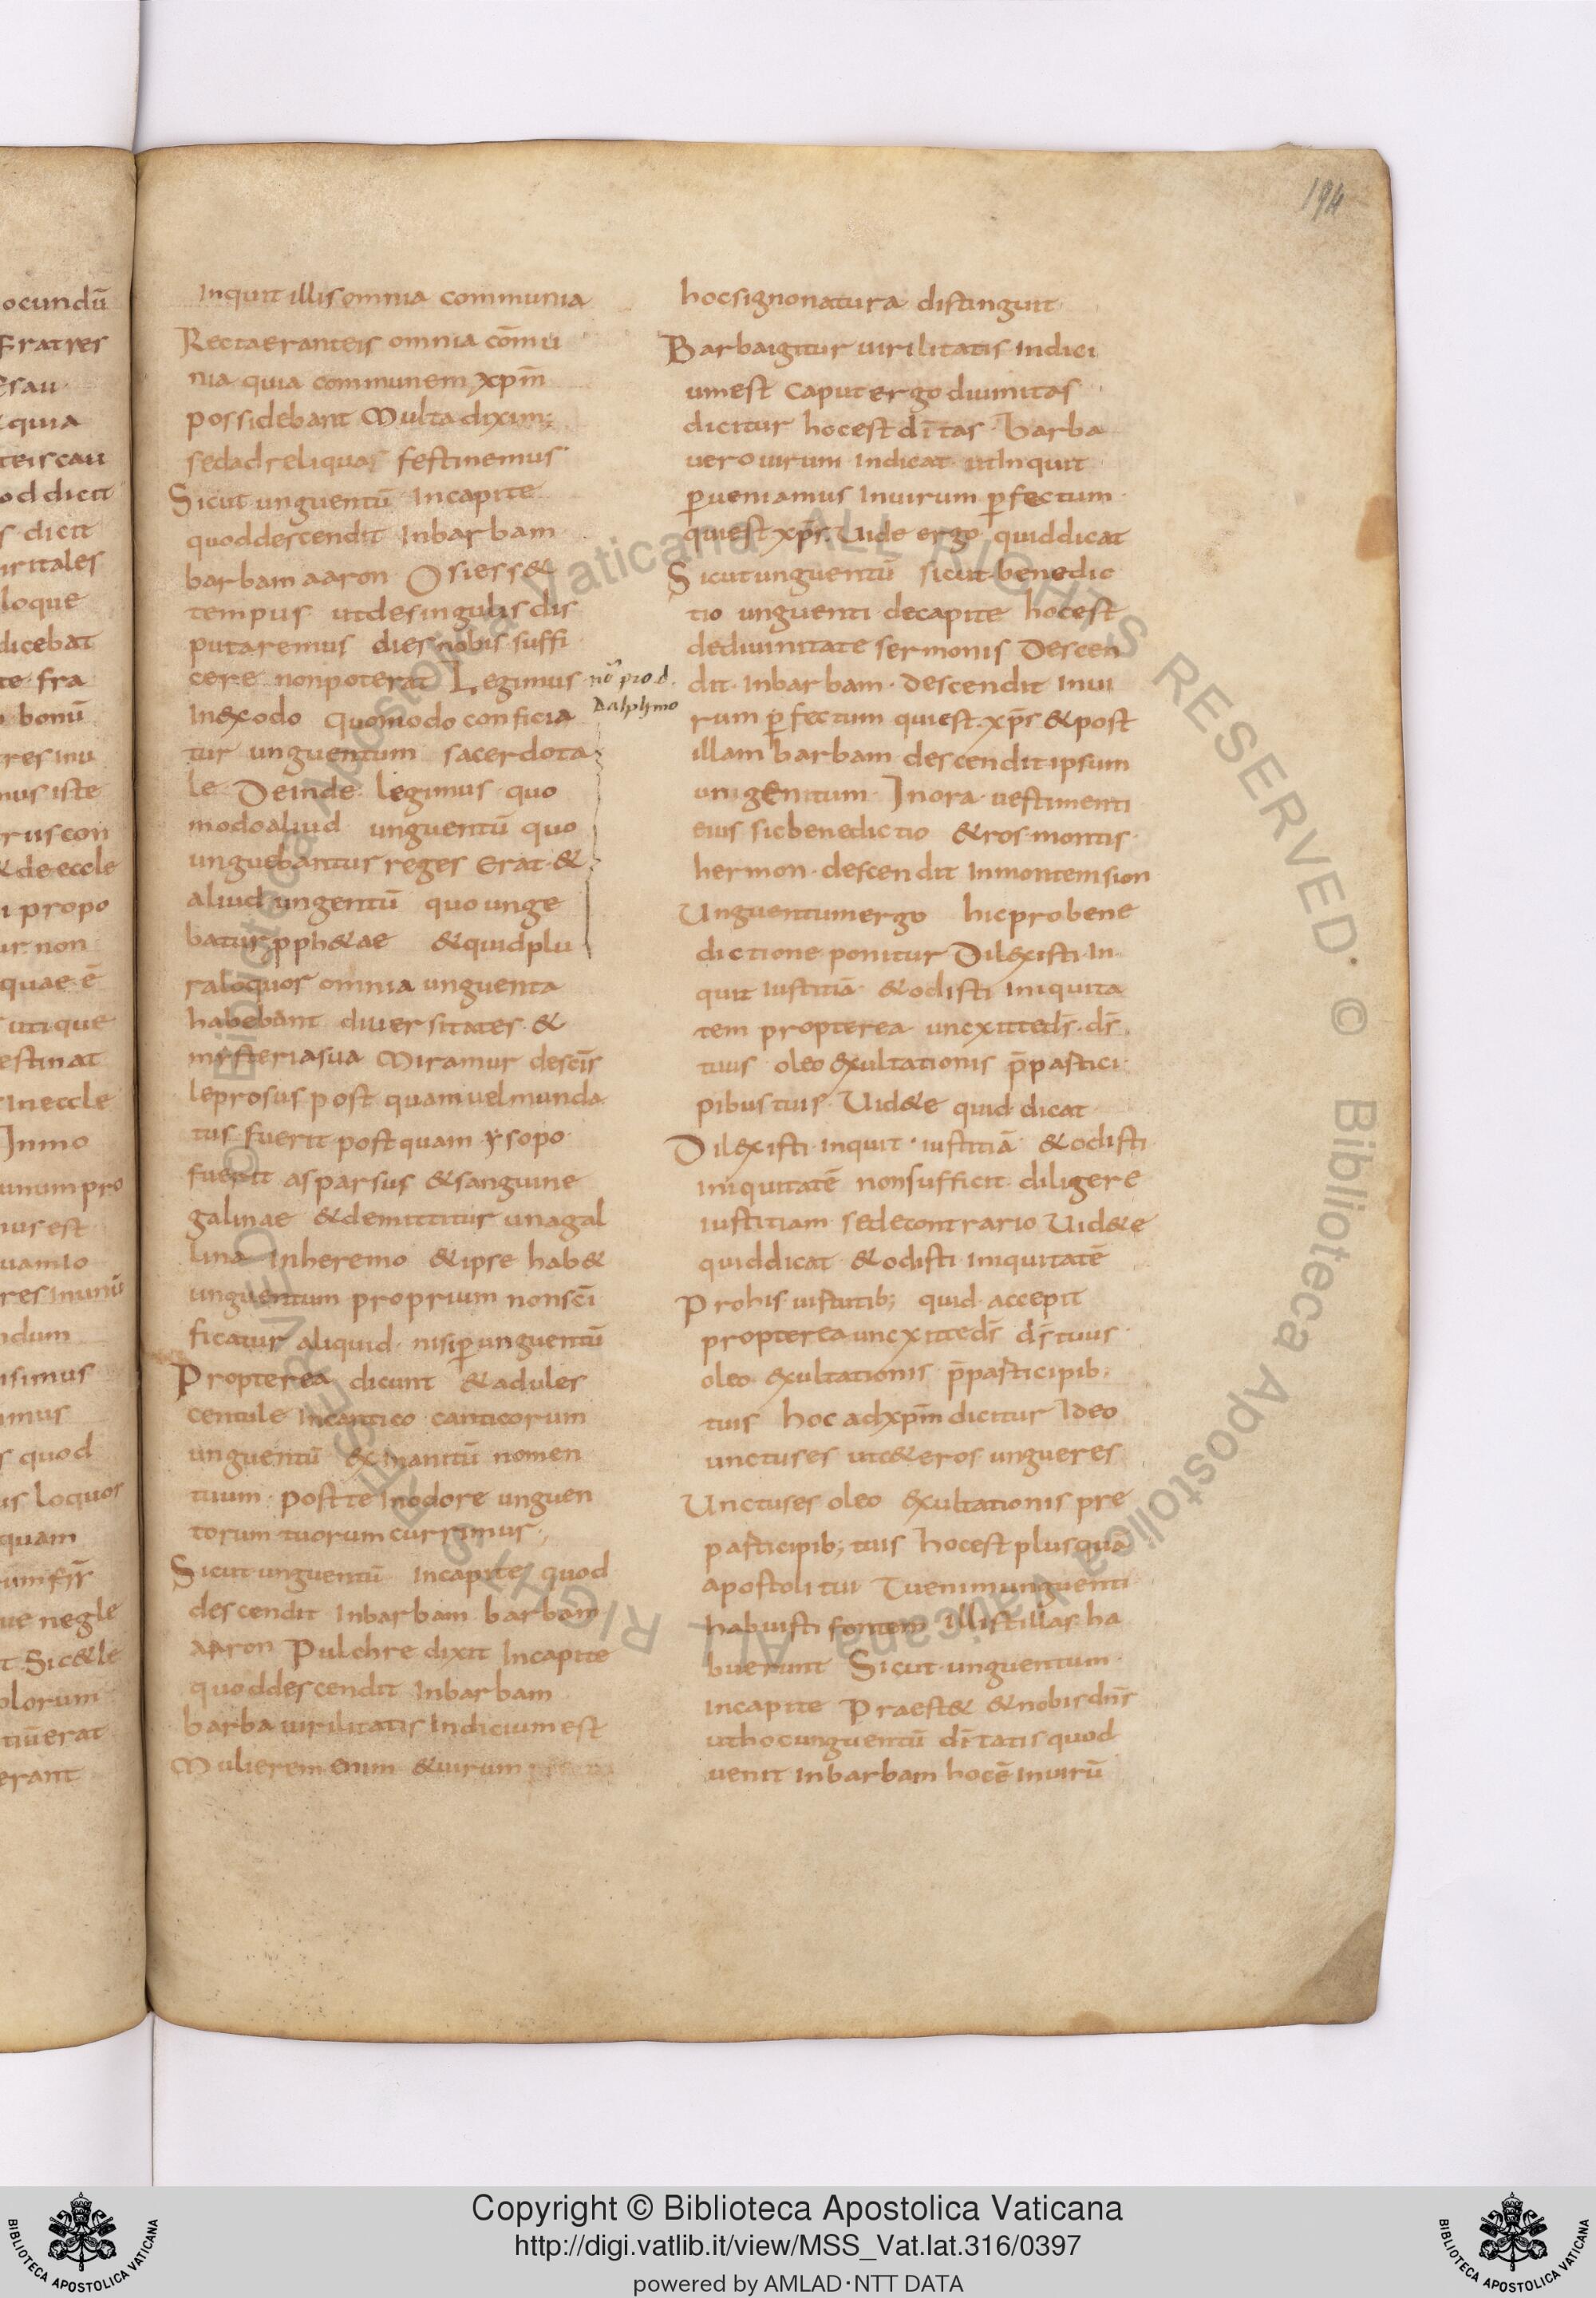 194
ocundū
Fratres
Esau
quia
teiscau
od dicit
s dicit
iritales
loque
dicebat
te fra
bonū
tres inu
nus iste
rus con
& de eccle
i propo
ur non
quae ē
utique
estinat
Ineccle
Inmo
unum pro
nus est
uamlo
res Inunū
ndum
isimus
imus
s quod
us loquor
quam
ue negle
t Sic&le
olorum
tiūerat
erant
Inquit illis omnia communia
Recta eranteis omnia cōmu
nia quia communem xpm̄
possidebant Multa dixim;
sedadreliquas festinemus
Sicut unguentū Incapite
quoddescendit Inbarbam
barbam aaron O siess&
tempus utdesingulis dis
putaremus dies nobis suffi
cere nonpoterat Legimus
In exodo quomodo conficia
tur unguentum sacerdota
le Deinde legimus quo
modoaliud unguentū quo
unguebantur reges Erat &
aliud ungentū quo unge
batur pph&ae & quidplu
raloquor omnia unguenta
habebant diuersitates &
mysteriasua Miramur desc̄is
leprosus post quam uel munda
tus fuerit postquam ysopo
fuerit asparsus & sanguine
galinae & demittitur unagal
lina Inheremo & ipse hab&
unguentum proprium nonsc̄i
ficatur aliquid nisip̄ unguentū
Propterea dicunt & adules
centule Incantico canticorum
unguentū exinanitū nomen
tuum post te Inodore unguen
torum tuorum currimus
Sicut unguentū Incapite quod
descendit Inbarbam barbam
aaron Pulchre dixit Incapite
quoddescendit Inbarbam
barba uirilitatis Indicium est
Mulierem enim & uirum
nō prod.
Dalphmo
hocsignonatura distinguit
Barbaigitur uirilitatis Indici
umest Caput ergo diuinitas
dicitur hocest dītas barba
uero uirum Indicat utInquit
p̄ueniamus Inuirum p̄fectum
quiest xp̄s. Uide ergo quiddicat
Sicutunguentū sicut benedic
tio unguenti decapite hocest
dediuinitate sermonis Descen
dit Inbarbam descendit Inui
rum p̄fectum quiest xp̄s & post
illam barbam descendit ipsum
unigenitum Inora uestimenti
eius sicbenedictio & ros montis
hermon descendit Inmontem sion
Unguentumergo hicprobene
dictione ponitur Dilexisti In
quit iustitiā & odisti iniquita
tem propterea unexitteds̄ ds̄
tuus oleo exultationis p̄partici
pibus tuis Uid&e quid dicat
Dilexisti inquit iustitiā & odisti
iniquitatē nonsufficit diligere
iustitiam sedecontrario Uid&e
quiddicat & odisti iniquitatē
Prohis uirtutib; quid accepit
propterea unexitteds̄ ds̄ tuus
oleo exultationis p̄participib;
tuis hoc adxpm̄ dicitur Ideo
unctuses utc&eros ungueres
Unctuses oleo exultationis pre
participib; tuis hocest plusqua
apostoli tui Tuenimunguenti
habuisti fontem illi stillas ha
buerunt Sicut unguentum
Incapite Praest& & nobis dn̄s
uthocunguentū dītatis quod
uenit Inbarbam hocē Inuirū
© Biblioteca Apostolica Vaticana ALL RIGHTS RESERVED. © Biblioteca Apostolica Vaticana ALL RIGHTS RESERVED
Copyright © Biblioteca Apostolica Vaticana
http://digi.vatlib.it/view/MSS_Vat.lat.316/0397
powered by AMLAD·NTT DATA
BIBLIOTECA APOSTOLICA VATICANA
BIBLIOTECA APOSTOLICA VATICANA